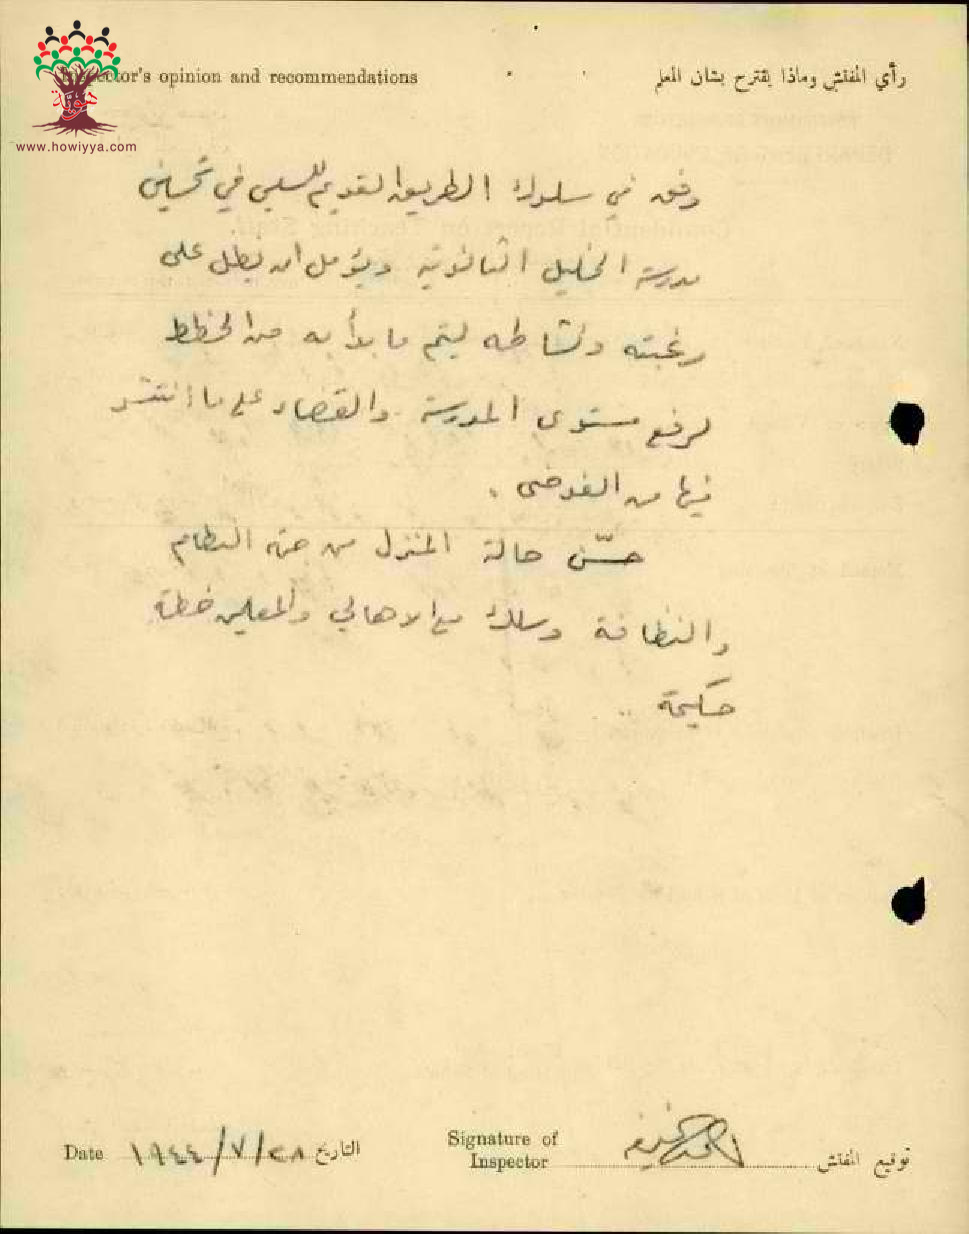 هوية
www.howiyya.com
Inspector's opinion and recommendations
رأي المفتش وماذا يقترح بشان المعلم
وفق في سلوك الطريق القويم للسعي في تحسين
مدرسة الخليل الثانوية ويؤمل ان يظل على
رغبته ونشاطه ليتم ما بدأ به من الخطط
لرفع مستوى المدرسة والقضاء على ما انتشر
فيها من الفوضى .
حسّن حالة المنزل من جهة النظام
والنظافة وسلك مع الاهالي والمعلمين خطة
حكيمة ..
Date ١٩٤٤/٧/٢٨ التاريخ
Signature of Inspector
توقيع المفتش